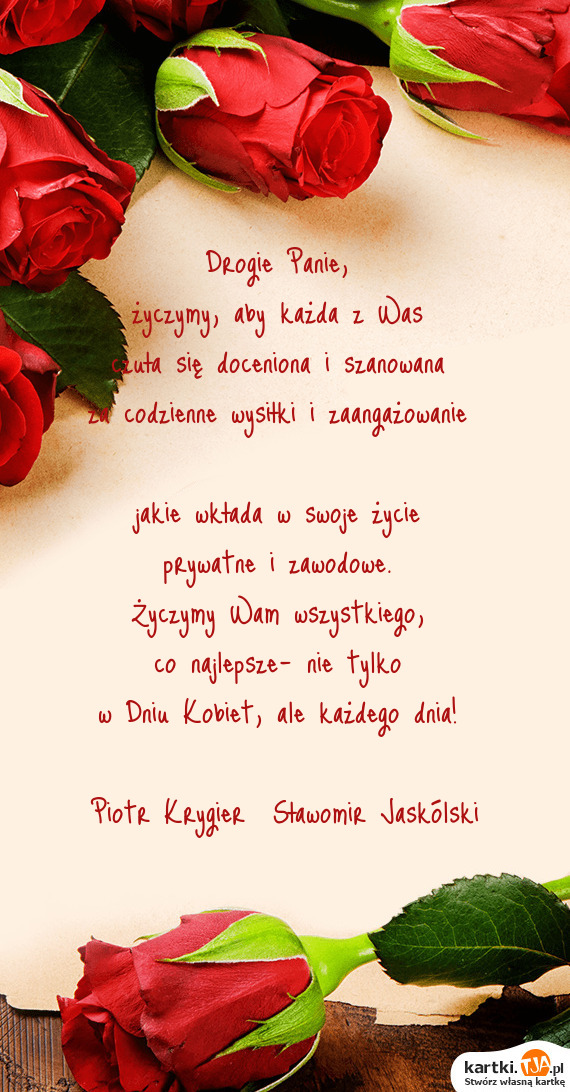 Drogie Panie,
życzymy, aby każda z Was
czuła się doceniona i szanowana
za codzienne wysiłki i zaangażowanie
jakie wkłada w swoje życie
prywatne i zawodowe.
Życzymy Wam wszystkiego,
co najlepsze- nie tylko
w Dniu Kobiet, ale każdego dnia!
Piotr Krygier Sławomir Jaskólski
kartki.TJA.pl
Stwórz własną kartkę